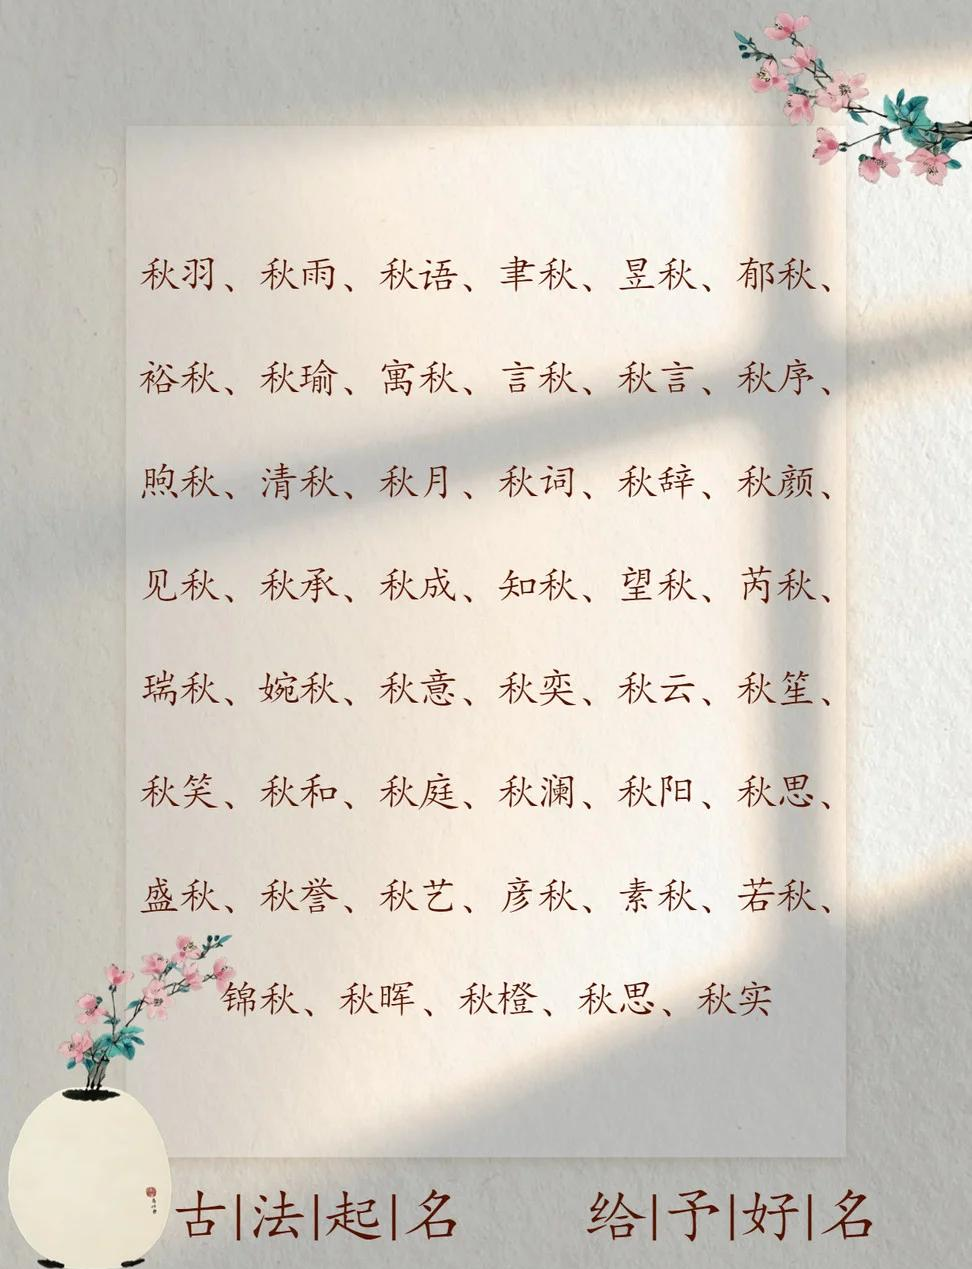 秋羽、秋雨、秋语、聿秋、昱秋、郁秋、
裕秋、秋瑜、寓秋、言秋、秋言、秋序、
煦秋、清秋、秋月、秋词、秋辞、秋颜、
见秋、秋承、秋成、知秋、望秋、芮秋、
瑞秋、婉秋、秋意、秋奕、秋云、秋笙、
秋笑、秋和、秋庭、秋澜、秋阳、秋思、
盛秋、秋誉、秋艺、彦秋、素秋、若秋、
锦秋、秋晖、秋橙、秋思、秋实
古|法|起|名 给|予|好|名